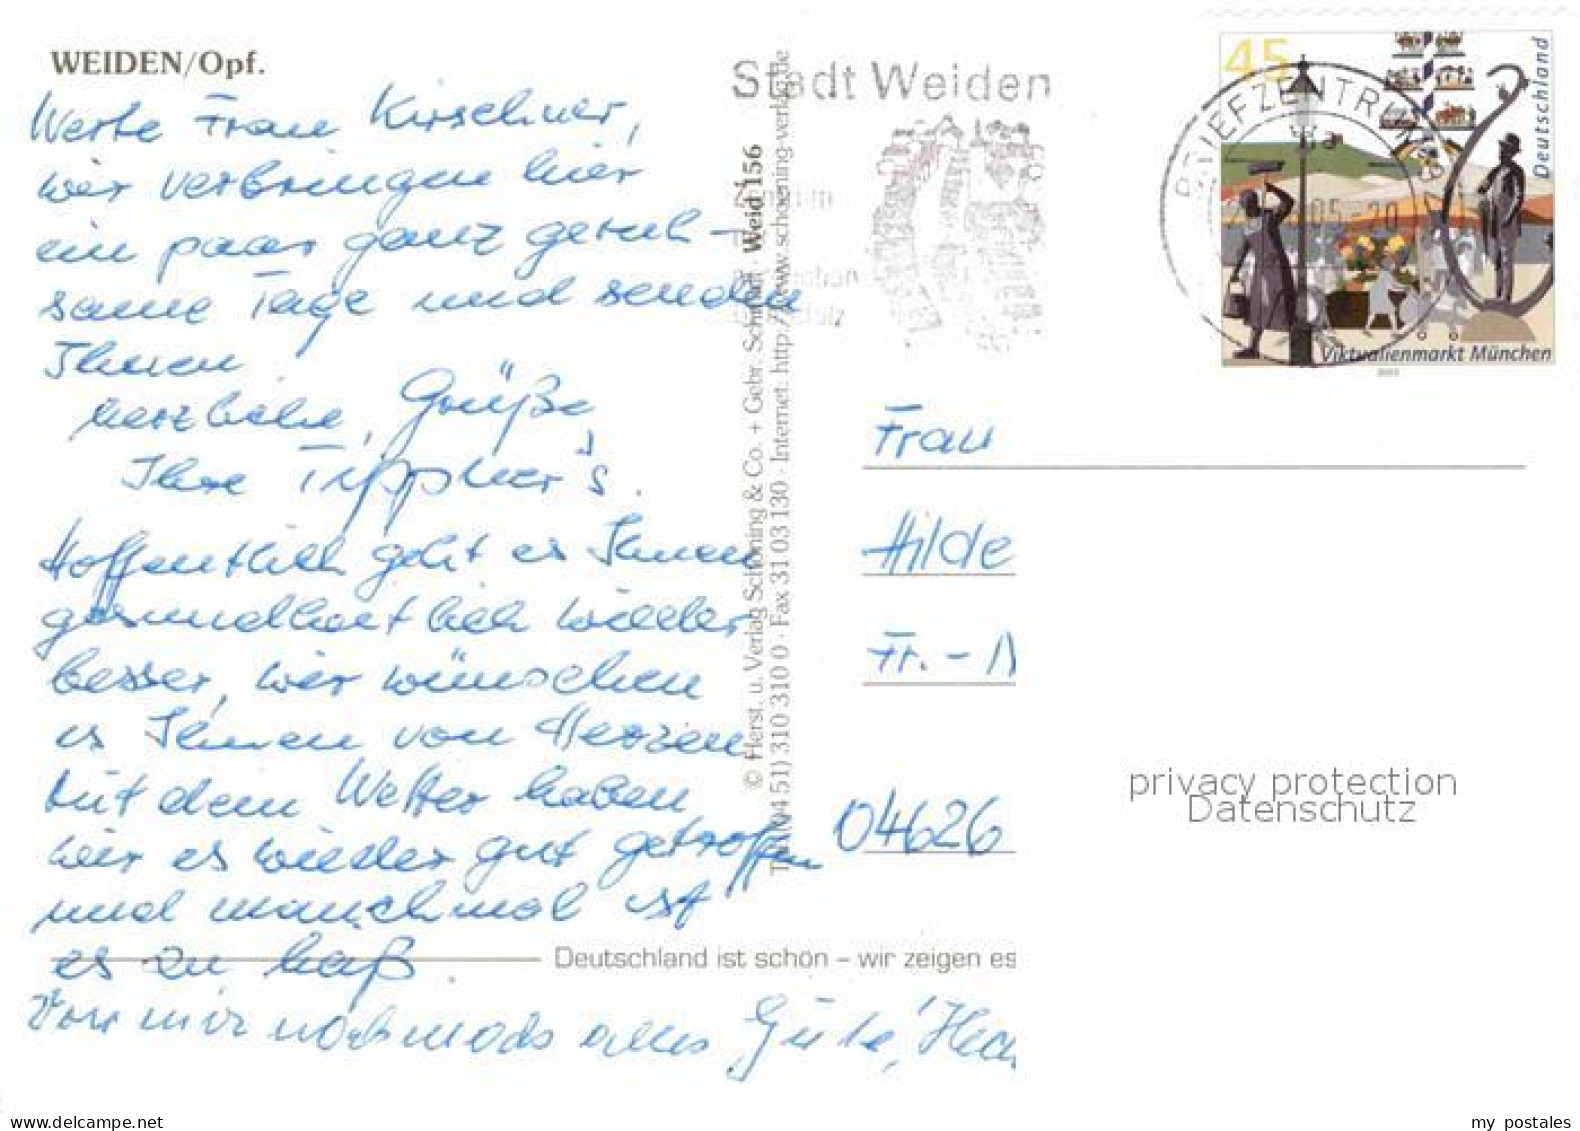 WEIDEN/Opf.
Werte Frau Kirschner,
wir verbringen hier
ein paar ganz geruh-
same Tage und senden
Ihnen
herzliche Grüße,
Ihre Tippner's.
Hoffentlich geht es Ihnen
gesundheitlich wieder
besser, wir wünschen
es Ihnen von Herzen
Mit dem Wetter haben
wir es wieder gut getroffen
und manchmal ist
es zu haiß.
Von mir nochmals alles Gute,
Deutschland ist schön – wir zeigen es
© Herst. u. Verlag Schöning & Co. + Gebr. Schmidt · Weid 156
Tel. (04 51) 310 310 0 · Fax 31 03 130 · Internet: http://www.schoening-verlag.de
Stadt Weiden
BRIEFZENTRUM
05-20
45
Deutschland
Viktualienmarkt München
2003
Frau
Hilde
Fr.-
04626
privacy protection
Datenschutz
www.delcampe.net
my_postales